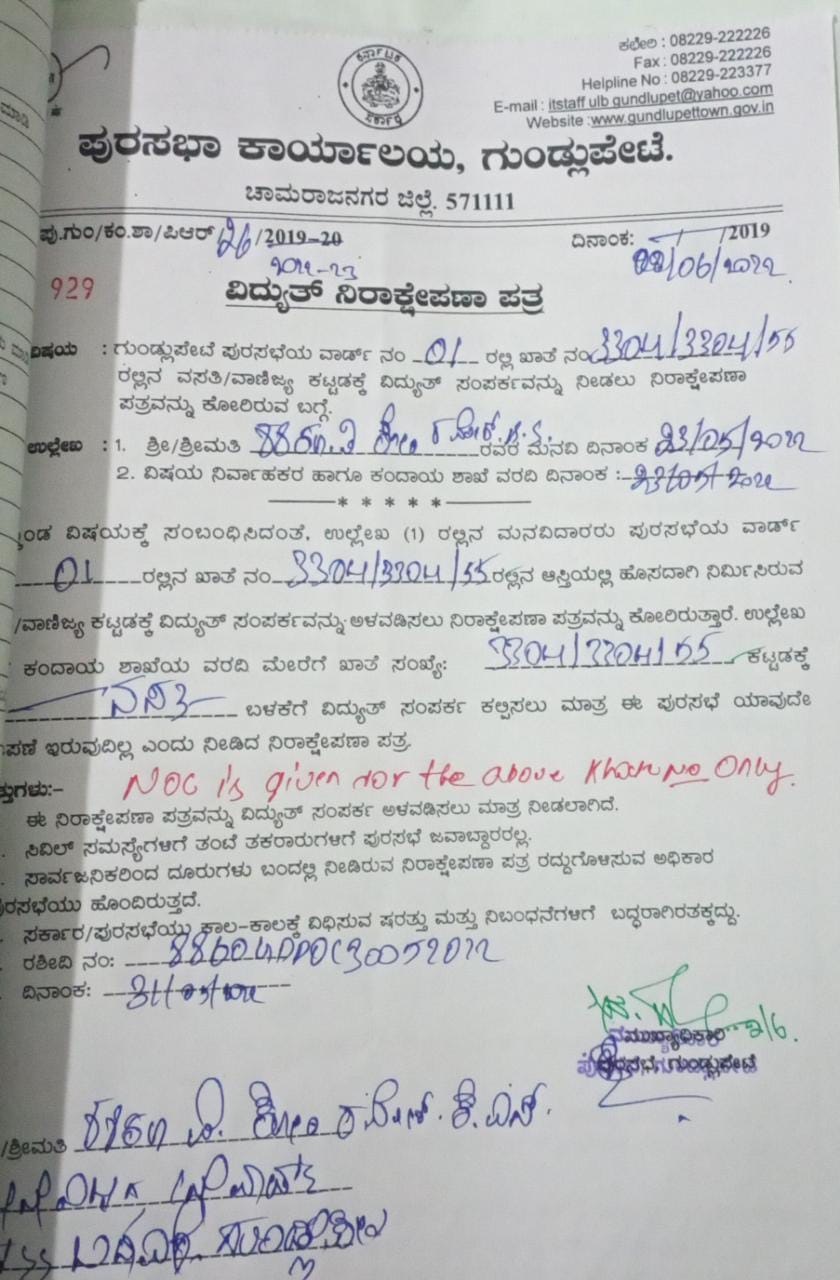 ಕರ್ನಾಟಕ
ಸರ್ಕಾರ
ಕಛೇರಿ : 08229-222226
Fax : 08229-222226
Helpline No : 08229-223377
E-mail : itstaff ulb gundlupet@yahoo.com
Website :www.gundlupettown.gov.in
ಪುರಸಭಾ ಕಾರ್ಯಾಲಯ, ಗುಂಡ್ಲುಪೇಟೆ.
ಚಾಮರಾಜನಗರ ಜಿಲ್ಲೆ. 571111
ಪು.ಗುಂ/ಕಂ.ಶಾ/ಪಿಆರ್/26/2019-20 ದಿನಾಂಕ: /2019
2022-23 02/06/2022
929 ವಿದ್ಯುತ್ ನಿರಾಕ್ಷೇಪಣಾ ಪತ್ರ
ವಿಷಯ : ಗುಂಡ್ಲುಪೇಟೆ ಪುರಸಭೆಯ ವಾರ್ಡ್ ನಂ 01 ರಲ್ಲಿ ಖಾತೆ ನಂ 3304/3304/55
ರಲ್ಲಿನ ವಸತಿ/ವಾಣಿಜ್ಯ ಕಟ್ಟಡಕ್ಕೆ ವಿದ್ಯುತ್ ಸಂಪರ್ಕವನ್ನು ನೀಡಲು ನಿರಾಕ್ಷೇಪಣಾ
ಪತ್ರವನ್ನು ಕೋರಿರುವ ಬಗ್ಗೆ.
ಉಲ್ಲೇಖ : 1. ಶ್ರೀ/ಶ್ರೀಮತಿ ರವರ ಮನವಿ ದಿನಾಂಕ 23/05/2022
2. ವಿಷಯ ನಿರ್ವಾಹಕರ ಹಾಗೂ ಕಂದಾಯ ಶಾಖೆ ವರದಿ ದಿನಾಂಕ :-23/05/2022
* * * * *
ವಿಷಯಕ್ಕೆ ಸಂಬಂಧಿಸಿದಂತೆ, ಉಲ್ಲೇಖ (1) ರಲ್ಲಿನ ಮನವಿದಾರರು ಪುರಸಭೆಯ ವಾರ್ಡ್
01 ರಲ್ಲಿನ ಖಾತೆ ನಂ 3304/3304/55 ರಲ್ಲಿನ ಆಸ್ತಿಯಲ್ಲಿ ಹೊಸದಾಗಿ ನಿರ್ಮಿಸಿರುವ
/ವಾಣಿಜ್ಯ ಕಟ್ಟಡಕ್ಕೆ ವಿದ್ಯುತ್ ಸಂಪರ್ಕವನ್ನು ಅಳವಡಿಸಲು ನಿರಾಕ್ಷೇಪಣಾ ಪತ್ರವನ್ನು ಕೋರಿರುತ್ತಾರೆ. ಉಲ್ಲೇಖ
ಕಂದಾಯ ಶಾಖೆಯ ವರದಿ ಮೇರೆಗೆ ಖಾತೆ ಸಂಖ್ಯೆ: 3304/3304/55 ಕಟ್ಟಡಕ್ಕೆ
ವಸತಿ ಬಳಕೆಗೆ ವಿದ್ಯುತ್ ಸಂಪರ್ಕ ಕಲ್ಪಿಸಲು ಮಾತ್ರ ಈ ಪುರಸಭೆ ಯಾವುದೇ
ಪಣೆ ಇರುವುದಿಲ್ಲ ಎಂದು ನೀಡಿದ ನಿರಾಕ್ಷೇಪಣಾ ಪತ್ರ.
ತ್ತುಗಳು:- NOC is given for the above Khata No Only.
ಈ ನಿರಾಕ್ಷೇಪಣಾ ಪತ್ರವನ್ನು ವಿದ್ಯುತ್ ಸಂಪರ್ಕ ಅಳವಡಿಸಲು ಮಾತ್ರ ನೀಡಲಾಗಿದೆ.
ಸಿವಿಲ್ ಸಮಸ್ಯೆಗಳಿಗೆ ತಂಟೆ ತಕರಾರುಗಳಿಗೆ ಪುರಸಭೆ ಜವಾಬ್ದಾರರಲ್ಲ.
ಸಾರ್ವಜನಿಕರಿಂದ ದೂರುಗಳು ಬಂದಲ್ಲಿ ನೀಡಿರುವ ನಿರಾಕ್ಷೇಪಣಾ ಪತ್ರ ರದ್ದುಗೊಳಿಸುವ ಅಧಿಕಾರ
ಪುರಸಭೆಯು ಹೊಂದಿರುತ್ತದೆ.
ಸರ್ಕಾರ/ಪುರಸಭೆಯು ಕಾಲ-ಕಾಲಕ್ಕೆ ವಿಧಿಸುವ ಷರತ್ತು ಮತ್ತು ನಿಬಂಧನೆಗಳಿಗೆ ಬದ್ಧರಾಗಿರತಕ್ಕದ್ದು.
ರಶೀದಿ ನಂ:
ದಿನಾಂಕ:
2/6.
ಮುಖ್ಯಾಧಿಕಾರಿ
ಪುರಸಭೆ, ಗುಂಡ್ಲುಪೇಟೆ
/ಶ್ರೀಮತಿ